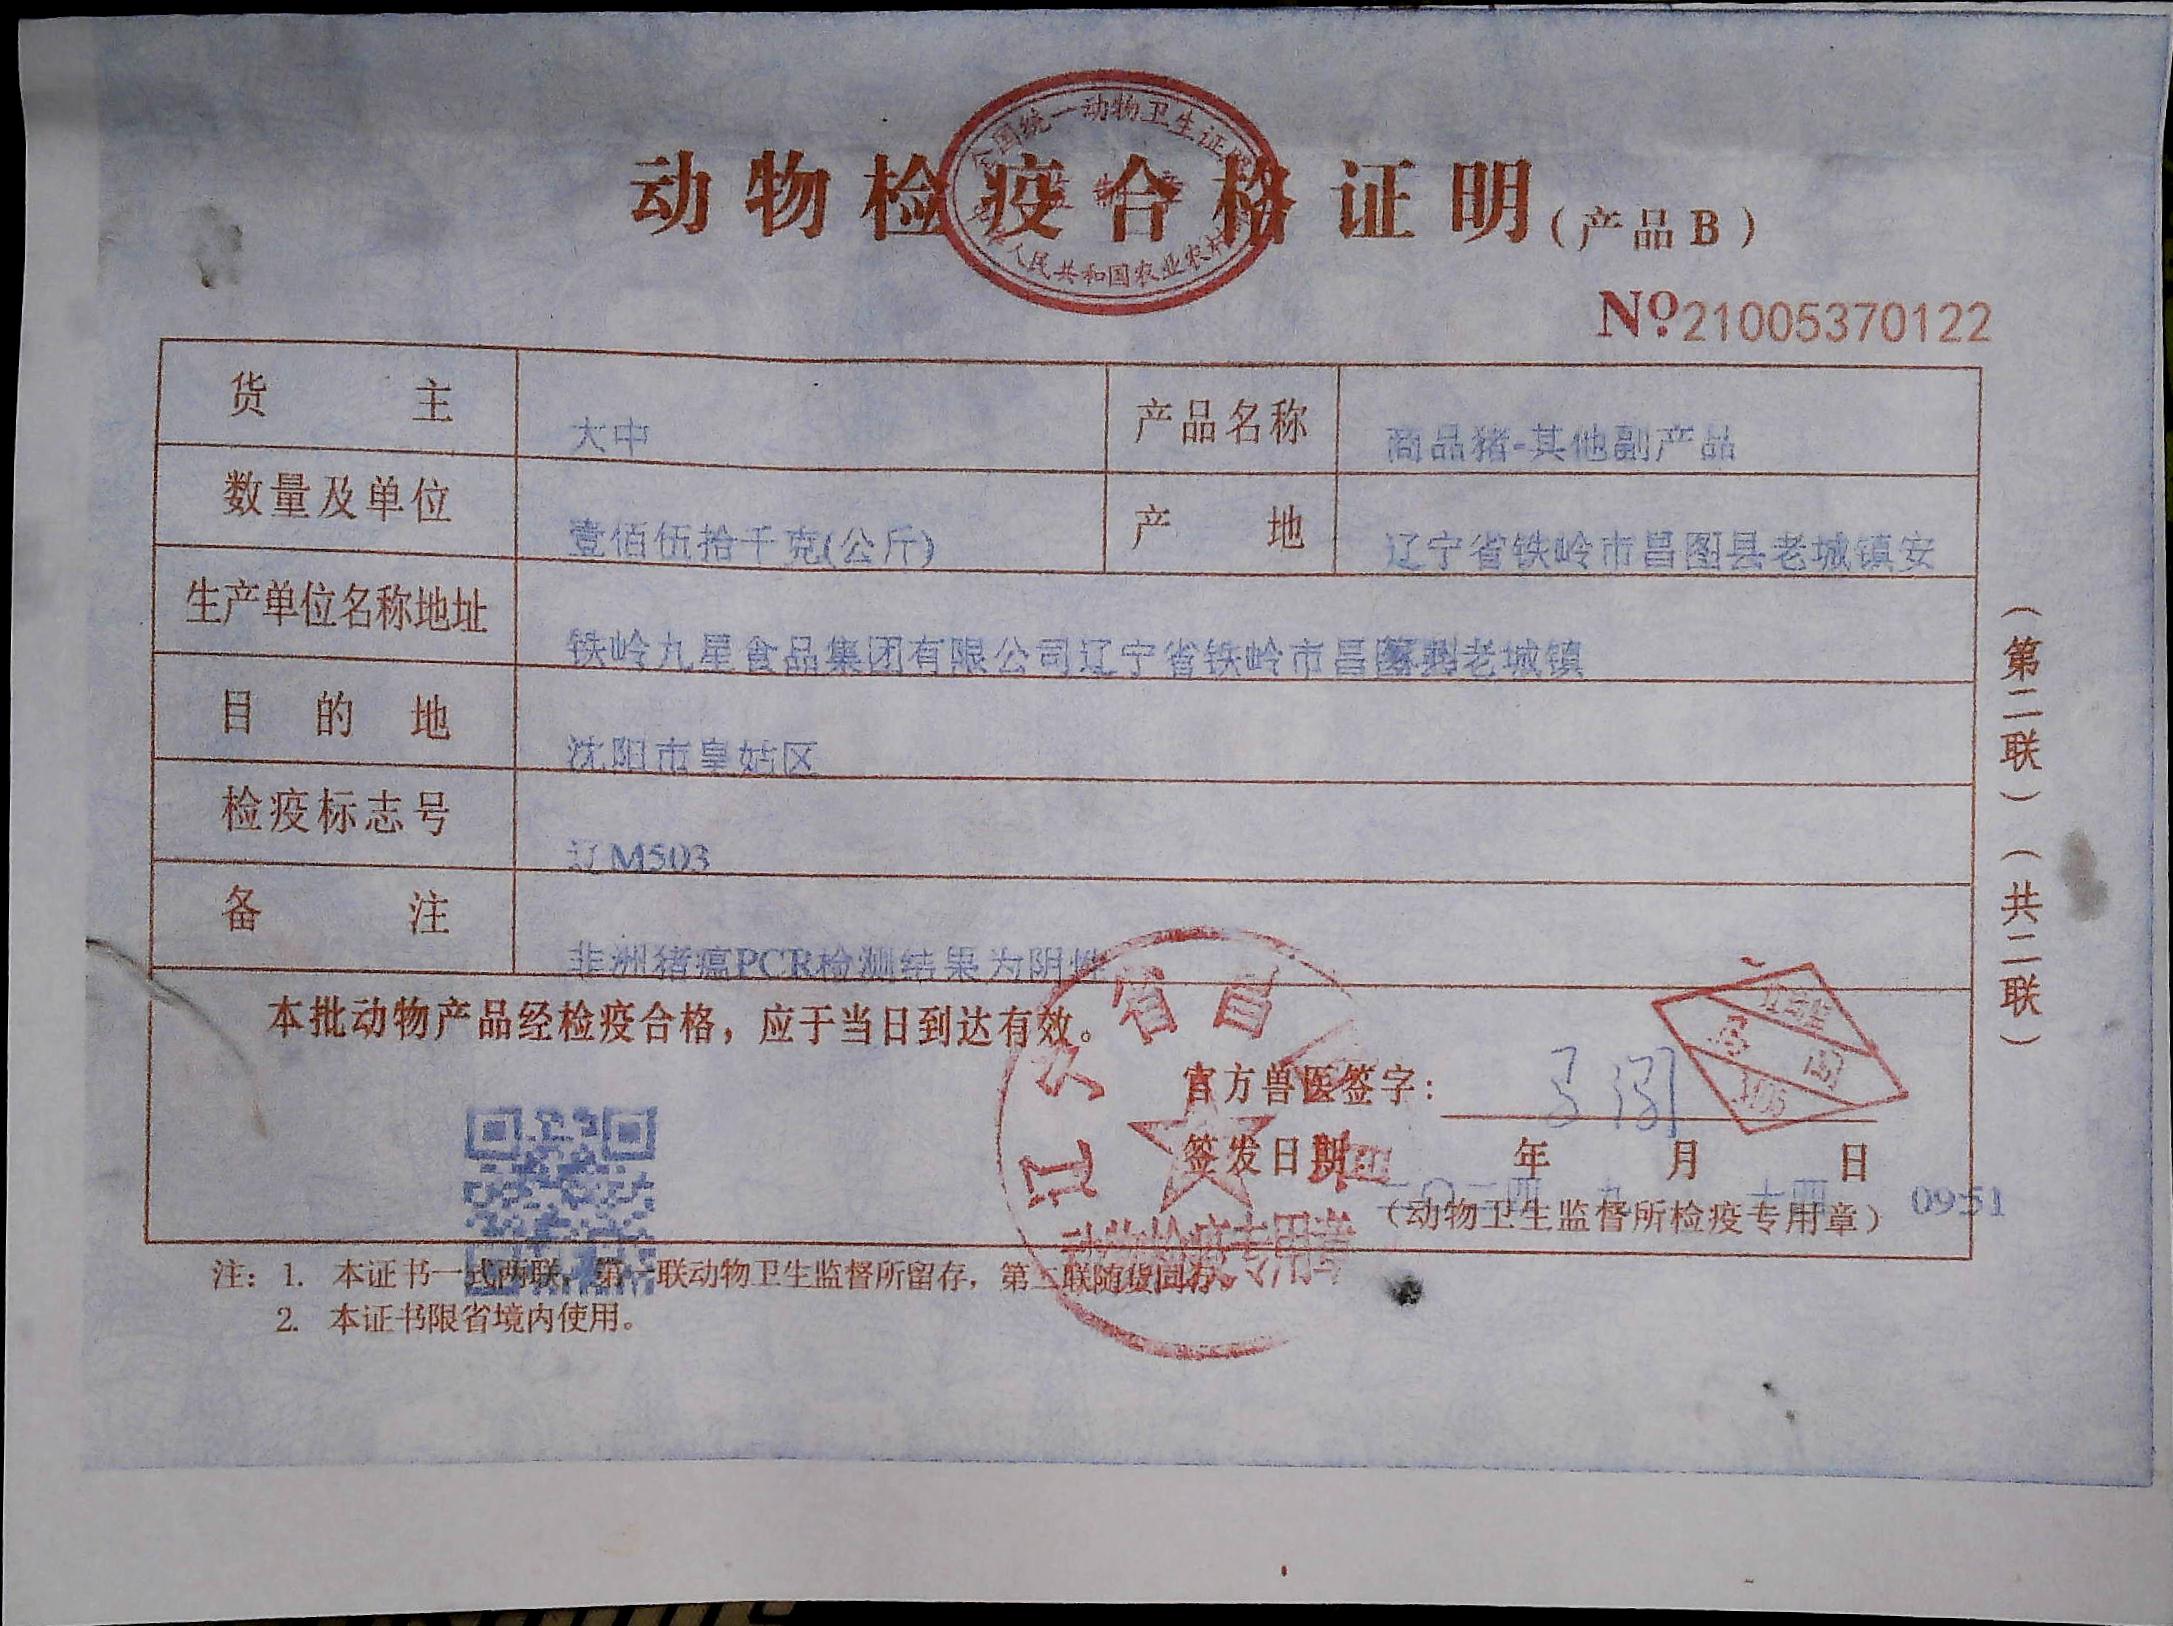 动物检疫合格证明(产品B)
全国统一动物卫生证
人民共和国农业农村
№21005370122
货主 大中 产品名称 商品猪-其他副产品
数量及单位 壹佰伍拾千克(公斤) 产地 辽宁省铁岭市昌图县老城镇安
生产单位名称地址 铁岭九星食品集团有限公司辽宁省铁岭市昌图县老城镇
目的地 沈阳市皇姑区
检疫标志号 辽M503
备注 非洲猪瘟PCR检测结果为阴性
本批动物产品经检疫合格，应于当日到达有效。
官方兽医签字：
签发日期： 二〇二四年 九月 十四日 0951
(动物卫生监督所检疫专用章)
辽 省昌
动物检疫专用章
注：1. 本证书一式两联，第一联动物卫生监督所留存，第二联随货同行。
2. 本证书限省境内使用。
(第二联)(共二联)